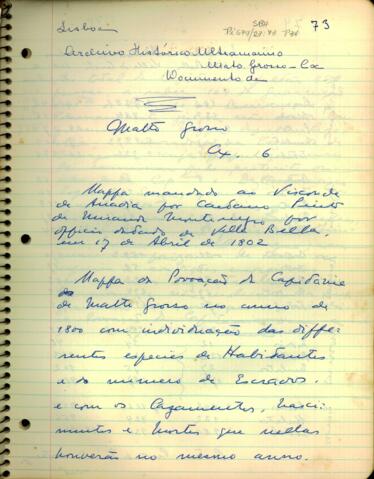 73
Lisboa
Archivo Histórico Ultramarino
Mato Grosso - Cx
Documento de
Matto Grosso
Cx. 6
Mappa mandado ao Visconde
de Anadia por Caetano Pinto
de Miranda Montenegro por
officio datado de Villa Bella,
em 17 de Abril de 1802
Mappa da Povoação da Capitania
de Matto Grosso no anno de
1800 com individuação das diffe-
rentes especies de Habitantes
e do numero de Escravos,
e com os Cazamentos, Nasci-
mentos e Mortes que nellas
houverão no mesmo anno.